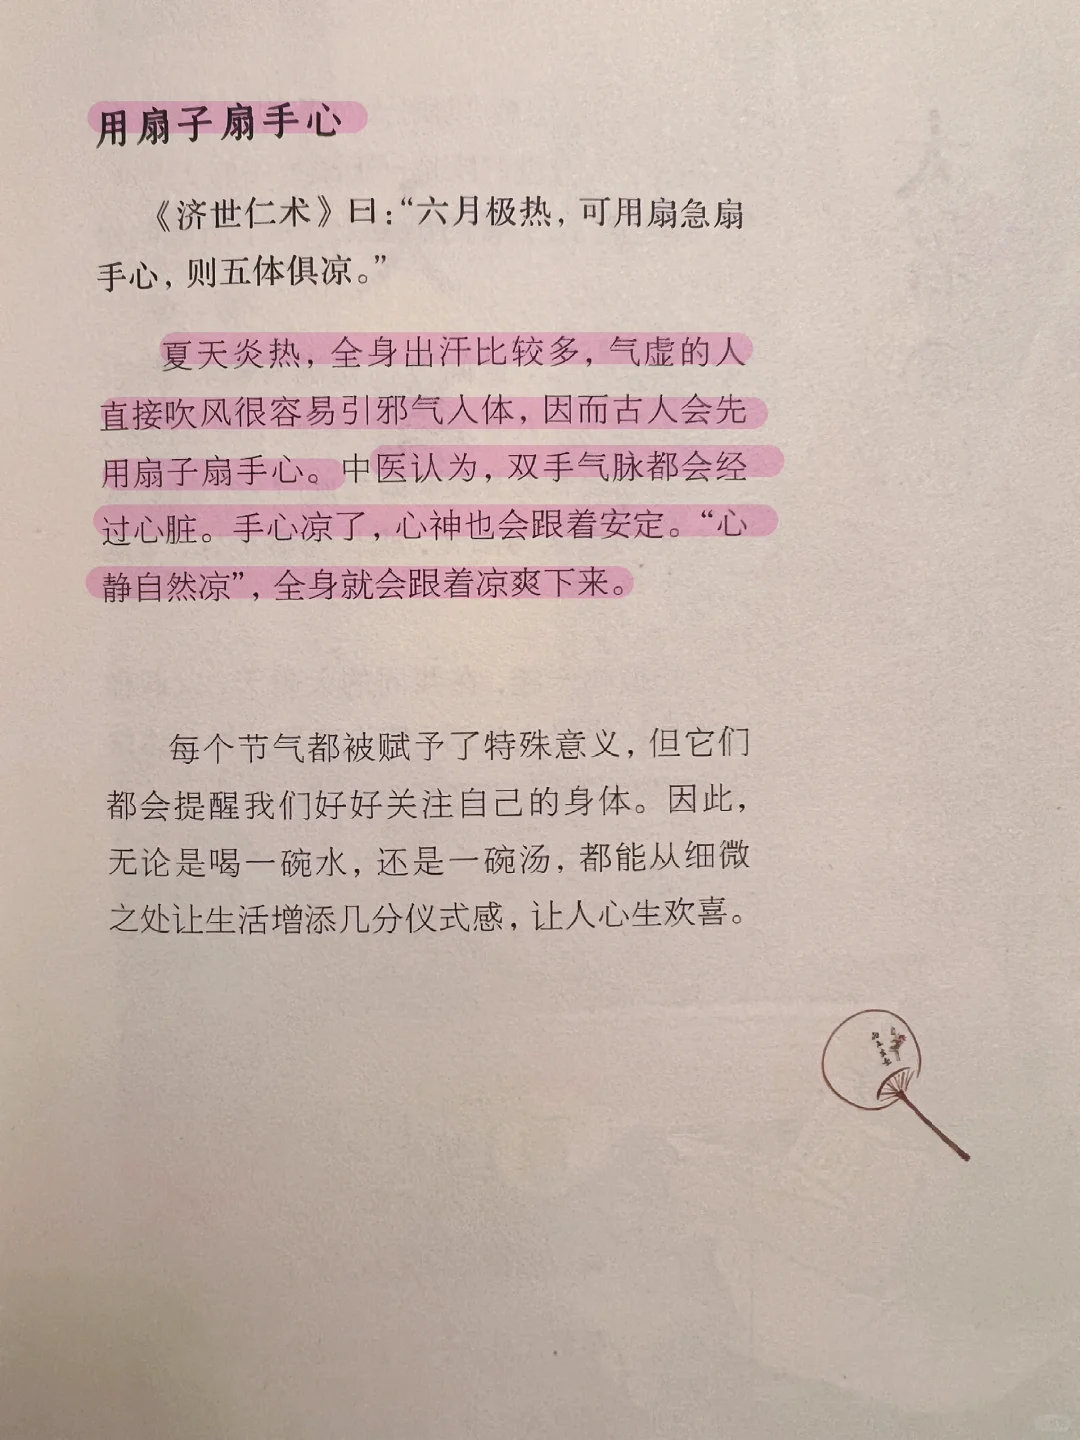 用扇子扇手心
《济世仁术》曰：“六月极热，可用扇急扇
手心，则五体俱凉。”
夏天炎热，全身出汗比较多，气虚的人
直接吹风很容易引邪气入体，因而古人会先
用扇子扇手心。中医认为，双手气脉都会经
过心脏。手心凉了，心神也会跟着安定。“心
静自然凉”，全身就会跟着凉爽下来。
每个节气都被赋予了特殊意义，但它们
都会提醒我们好好关注自己的身体。因此，
无论是喝一碗水，还是一碗汤，都能从细微
之处让生活增添几分仪式感，让人心生欢喜。